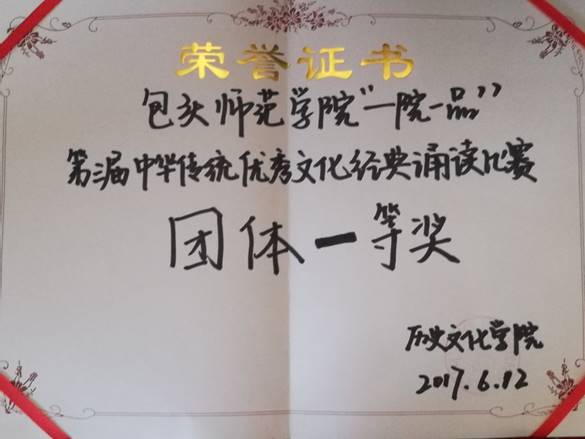 荣誉证书
包头师范学院"一院一品"
第三届中华传统优秀文化经典诵读比赛
团体一等奖
历史文化学院
2017.6.12